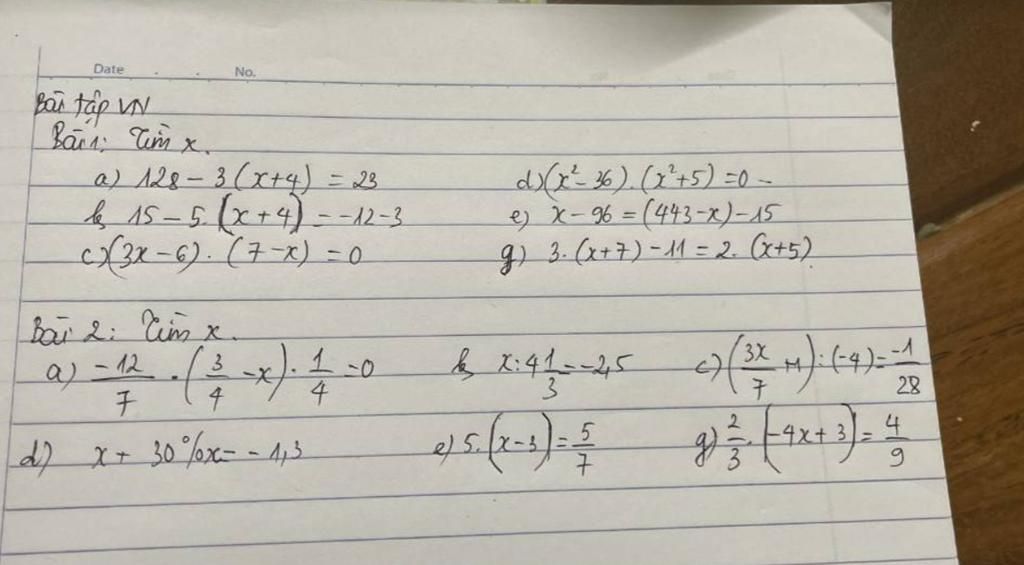 Date . . No.
Bài tập VN
Bài 1: Tìm x.
a) 128 - 3 (x+4) = 23 d) (x² - 36) . (x² + 5) = 0 -
b, 15 - 5. (x + 4) = -12 - 3 e) x - 96 = (443 - x) - 15
c) (3x - 6) . (7 - x) = 0 g) 3. (x+7) - 11 = 2. (x+5)
Bài 2: Tìm x.
a) -12/7 . (3/4 - x) . 1/4 = 0 b, x : 4 1/3 = -2,5 c) (3x/7 + 1) : (-4) = -1/28
d) x + 30%x = - 1,3 e) 5. (x - 3) = 5/7 g) 2/3 . (-4x + 3) = 4/9